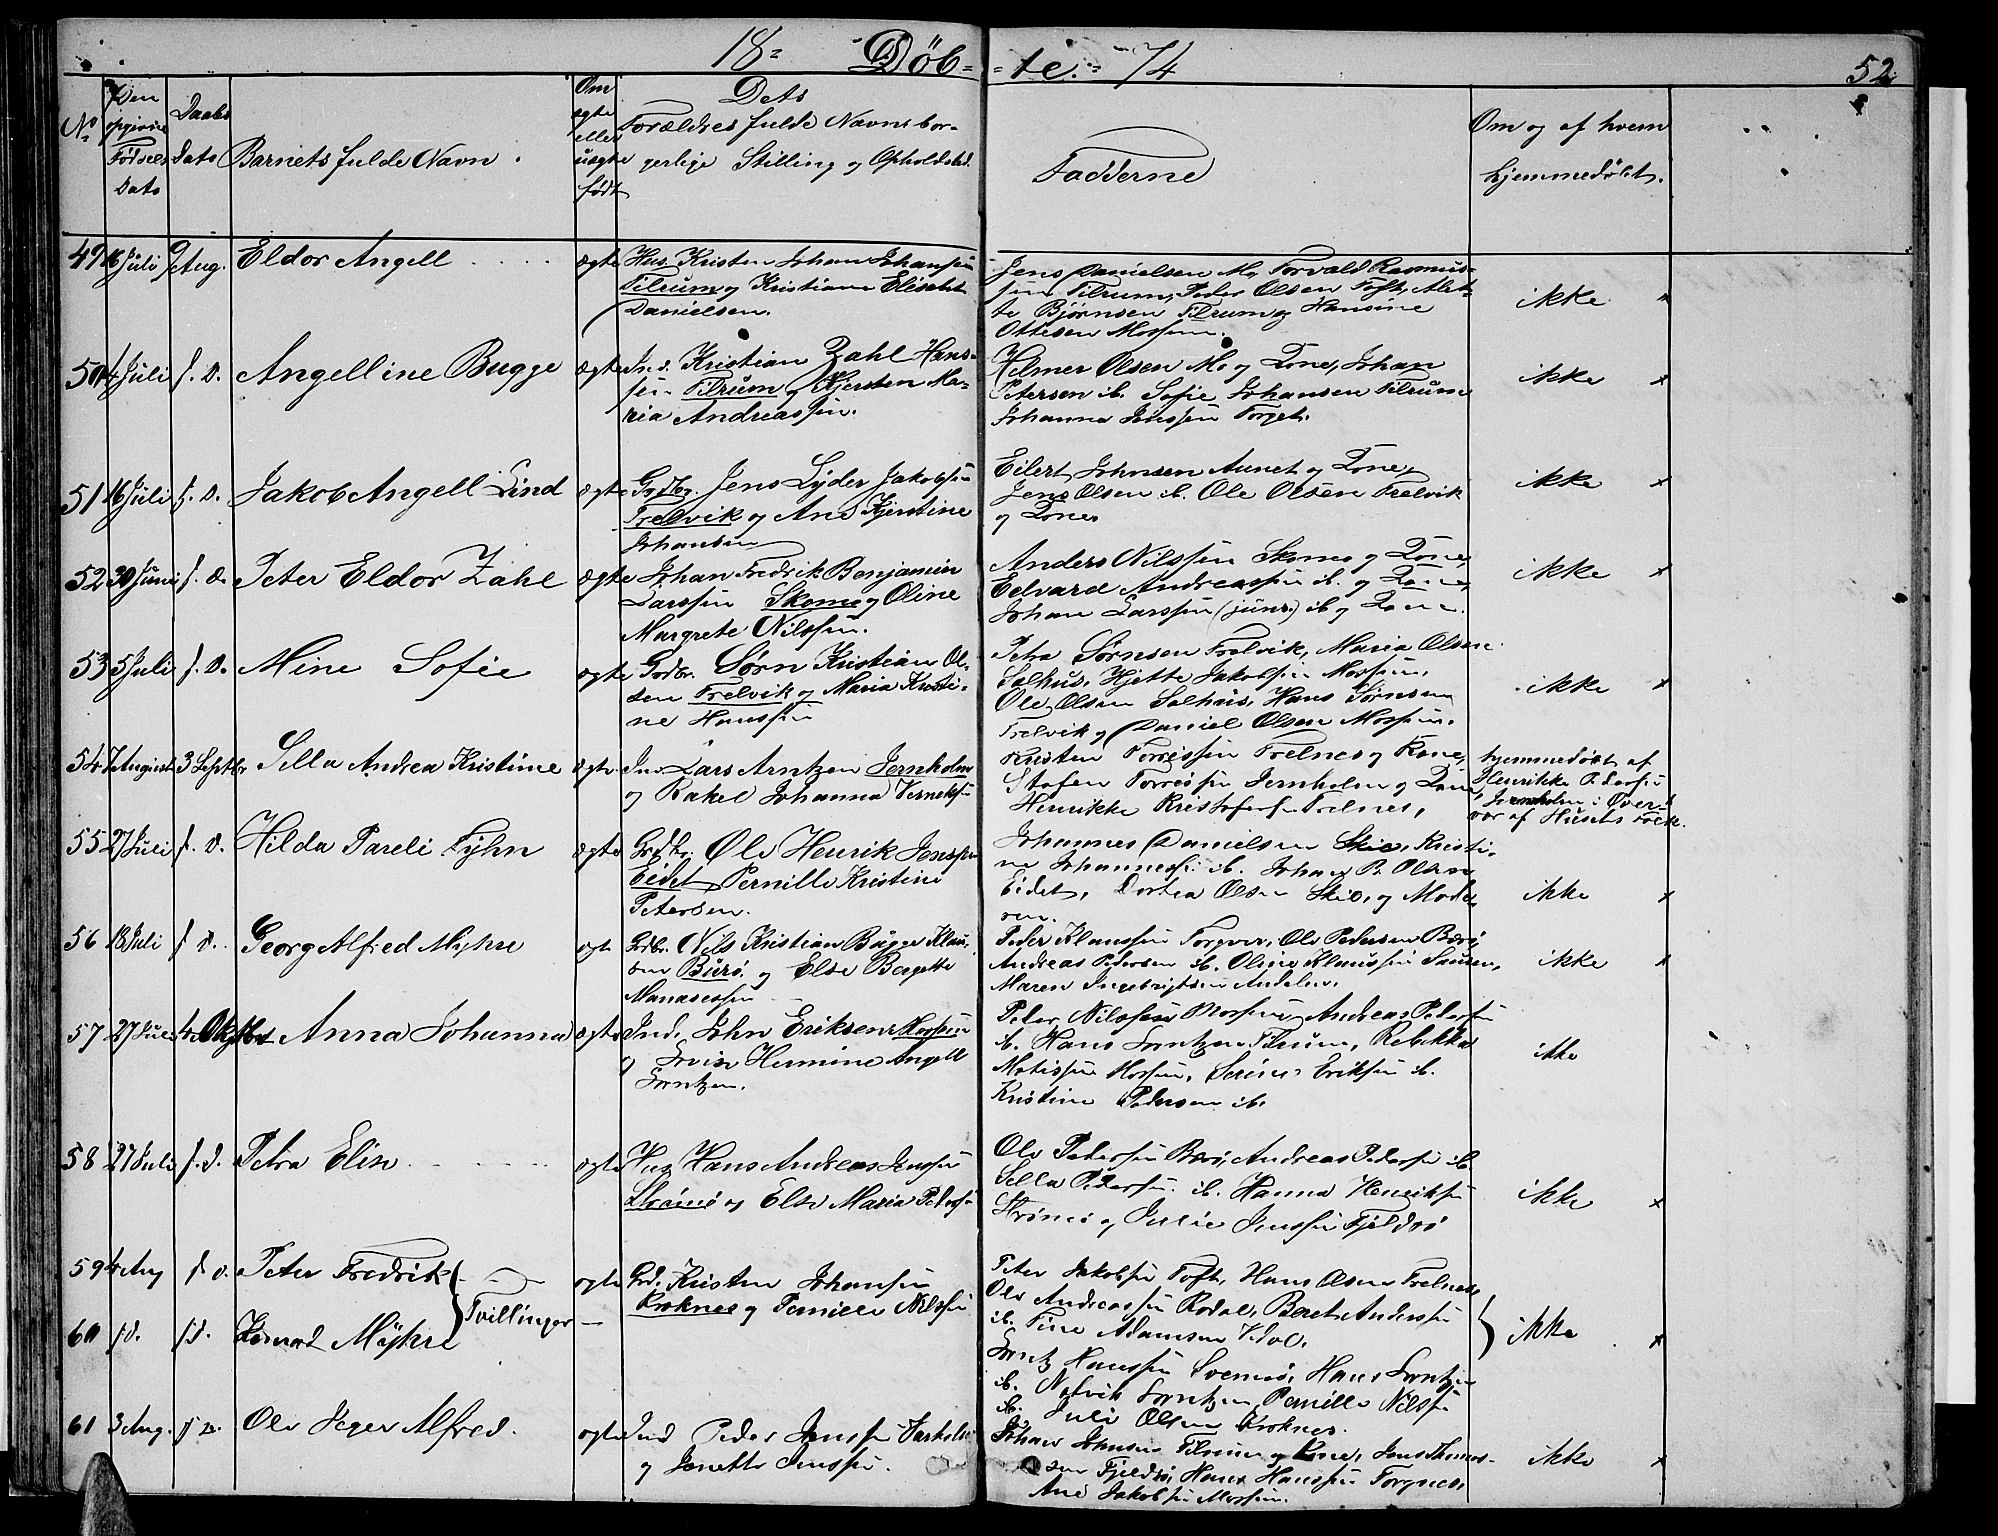 18 = Døb = = te. = 74
52
No
Den opgivne Fødsels Dato
Daabs Dato
Barnets fulde Navn.
Om ægte eller uægte født
Dets Forældres fulde Navns borgerlige Stilling og Opholdsted.
Fadderne
Om og af hvem hjemmedøbt.
49 16 Juli 9 Aug. Eldor Angell ægte Hus. Kristen Johan Johansen
Tilrum og Kristiane Elisabet
Danielsen.
Jens Danielsen M, Torvald Rasmus-
sen Tilrum, Peder Olsen Toft, Alet-
te Bjørnsen Tilrum og Hansine
Ottesen Mossem.
ikke
50 4 Juli s. D. Angelline Bugge ægte Ind. Kristian Zahl Hans-
sen Tilrum og Kjersten Ma-
ria Andreassen.
Helmer Olsen M. og Kone, Johan
Petersen ib. Sofie Johansen Tilrum
Johanna Jenssen Torget.
ikke
51 16 Juli s. D. Jakob Angell Lind ægte Grdbr. Jens Lyder Jakobsen
Trelvik og Ane Kjerstine
Johansen
Eilert Johnsen Aunet og Kone,
Jens Olsen ib. Ole Olsen Trelvik
og Kone
ikke
52 30 Juni s. D. Peter Eldor Zahl ægte Johan Fredrik Benjamin
Larssen Skomo og Oline
Margrete Nilssen.
Anders Nilssen Skomo og Kone,
Edvard Andreassen ib. og Kone,
Johan Larssen (juns.) ib og Kone.
ikke
53 5 Juli s. D. Mine Sofie ægte Grdbr. Sørn Kristian Ol-
sen Trelvik og Maria Kristi-
ne Hanssen
Petra Sørnsen Trelvik, Maria Olsen
Salhus, Hjette Jakobsen Mossem,
Ole Olsen Salhus, Hans Sørnsen
Trelvik og Daniel Olsen Mossem.
ikke
54 7 August 3 Septbr Sella Andrea Kristine ægte Ind Lars Arntzen Jernholm
og Rakel Johanna
Kristen Torressen Trelnes og Kone,
Stefen Torressen Jernholm og Kone,
Henrikke Kristofersen Trelnes,
hjemmedøbt af
Henrikke Pedersen
Jernholm i Over-
vær af Husets Folk.
55 27 Juli s. D. Hilda Pareli Lyhn ægte Grdbr. Ole Henrik Jenssen
Eidet, Pernille Kristine
Petersen.
Johannes Danielsen Skie, Kristi-
ne Johannessen ib. Johan P. Olsen
Eidet, Dortea Olsen Skie, og Mode-
ren.
ikke
56 18 Juli s. D. Georg Alfred Myhre ægte Grdbr. Nils Kristian Bugge Klau-
sen Burø og Else Bergette
Manassessen
Peder Klaussen Torgver, Ole Pedersen Bærø,
Andreas Pedersen ib. Oline Klaussen Sausen,
Maren Ingebrigtsen Andalen.
ikke
57 27 Juli 4 Oktbr Anna Johanna ægte Ind. John Eriksen Mossem
og Lovise Hermine Angell
Lorntzen.
Peder Nilssen Mossem, Andreas Pedersen
ib. Hans Lorntzen Tilrum, Rebekka
Matissen Mossem, Serine Eriksen ib.
Kristine Pedersen ib.
ikke
58 27 Juli s. D. Petra Elin ægte Hus Hans Andreas Jenssen
og Else Maria Pedersen
Ole Pedersen Bærø, Andreas Pedersen ib.
Sella Pedersen ib. Hanna Henriksen
og Julie Jenssen Fjeldø
ikke
59 4 Aug s. D. Peter Fredrik ægte Grd. Kristen Johansen
Kroknes og Pernille Nilssen
60 s. D. s. D. Myhre Tvillinger —
Peter Jakobsen Toft, Hans Olsen Trelnes,
Ole Andreassen Rodal, Beret Anderssen
ib. Tine Adamsen Vidal.
Lorntz Hanssen Svemø, Hans Lorntzen
ib. Lorntzen, Pernille Nilssen
ib. Julie Olsen Kroknes.
ikke
61 3 Aug. s. D. Ole Jeger Alfred. ægte Ind Peder Jenssen
og Janette Jenssen.
Johan Johnsen Tilrum og Kone, Jens Thomas-
sen Fjeldø, Hans Hanssen Torgnes,
Ane Jakobsen Mossem.
ikke